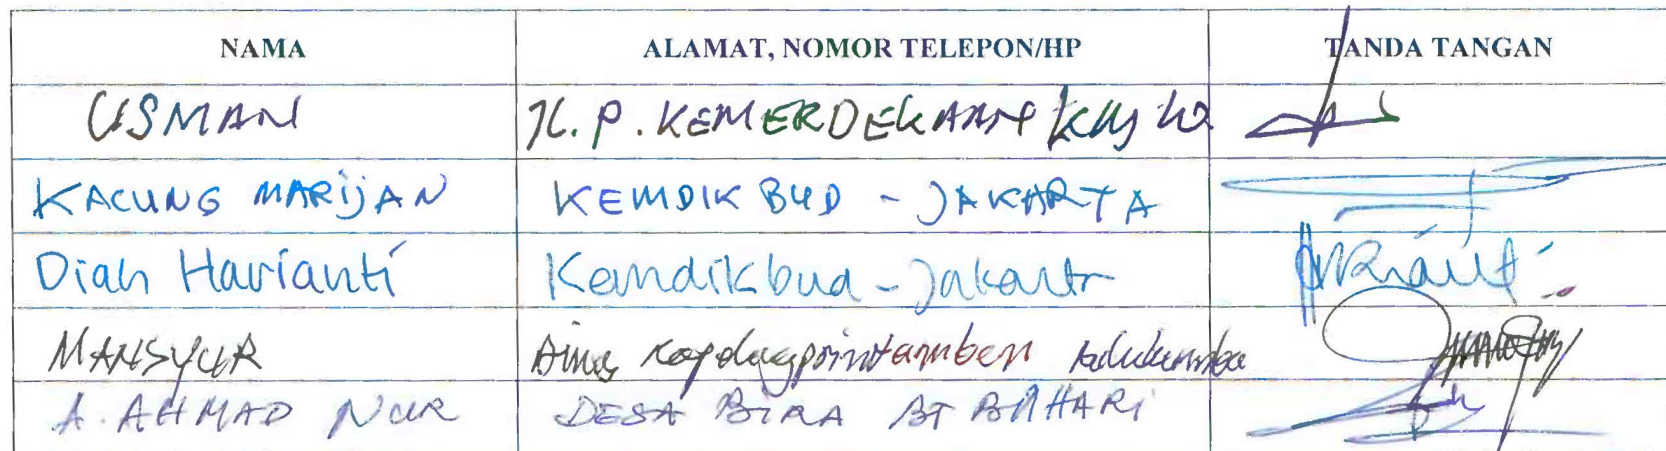 NAMA ALAMAT, NOMOR TELEPON/HP TANDA TANGAN
USMAN JL. P. KEMERDEKAAN
KACUNG MARIJAN KEMDIKBUD - JAKARTA
Diah Harianti Kemdikbud - Jakarta
MANSYUR Dinas
A. AHMAD NUR DESA BIRA BT BAHARI